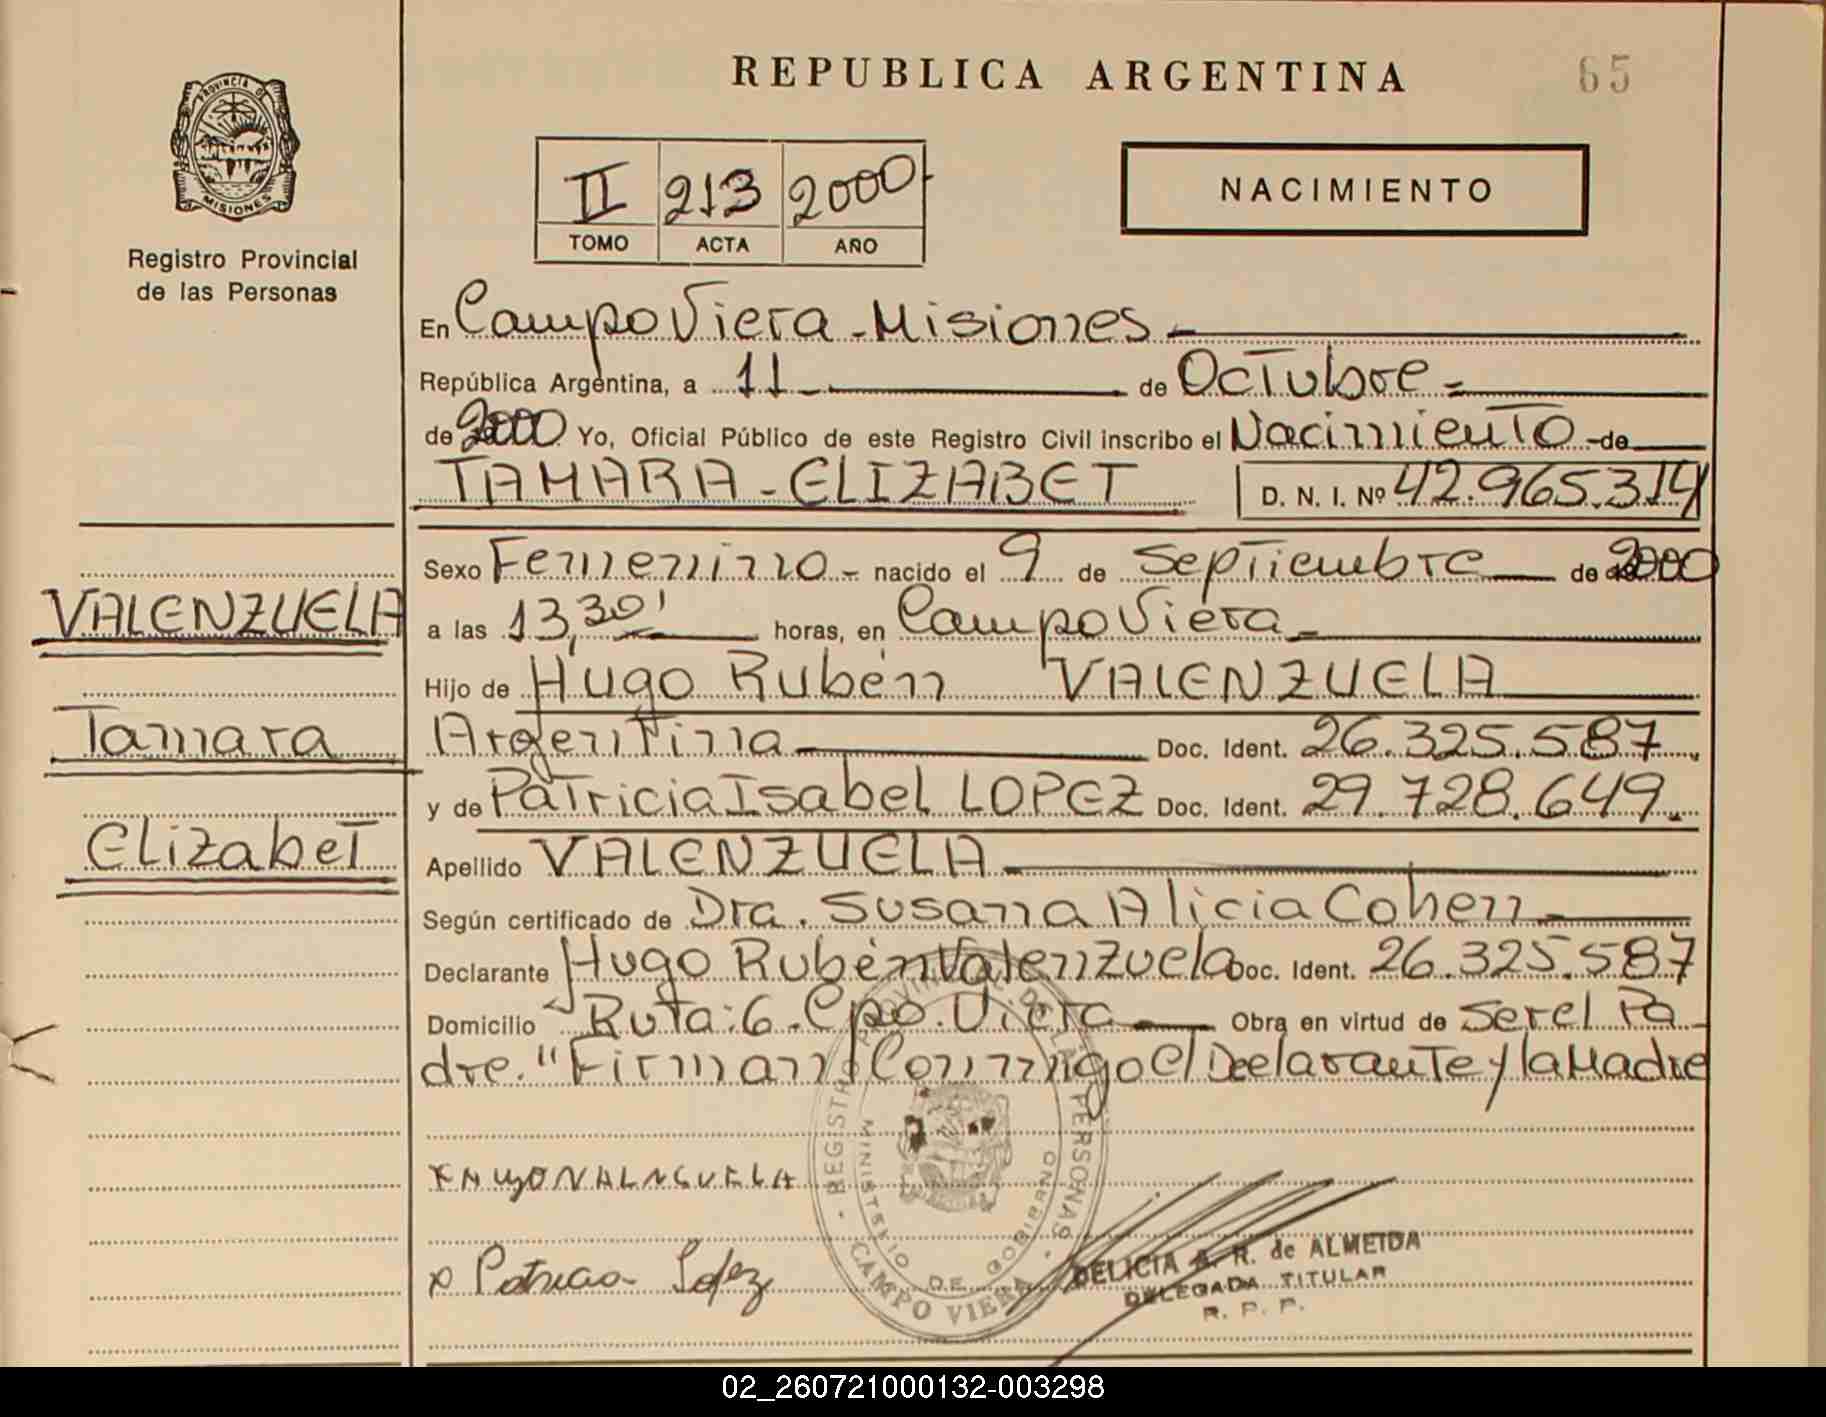 REPUBLICA ARGENTINA
65
PROVINCIA D
MISIONES
Registro Provincial
de las Personas
II 213 2000
TOMO ACTA AÑO
NACIMIENTO
En Campo Viera - Misiones
República Argentina, a 11 de Octubre
de 2000 Yo, Oficial Público de este Registro Civil inscribo el Nacimiento de
TAMARA - ELIZABET D. N. I. Nº 42.965.314
Sexo Femenino - nacido el 9 de Septiembre de 2000
VALENZUELA
a las 13,30' horas, en Campo Viera
Hijo de Hugo Rubén VALENZUELA
Tamara
Argentina Doc. Ident. 26.325.587
y de Patricia Isabel LOPEZ Doc. Ident. 29.728.649
Elizabet
Apellido VALENZUELA
Según certificado de Dra. Susana Alicia Cohen
Declarante Hugo Rubén Valenzuela Doc. Ident. 26.325.587
Domicilio Ruta: 6. Cpo. Viera Obra en virtud de Ser el Pa
dre. "Firman Conmigo el Declarante y la Madre
REGISTRO PROVINCIAL DE LAS PERSONAS
MINISTERIO DE GOBIERNO
CAMPO VIERA
x Patricia Lopez
DELICIA A. R. de ALMEIDA
DELEGADA TITULAR
R. P. P.
02_260721000132-003298